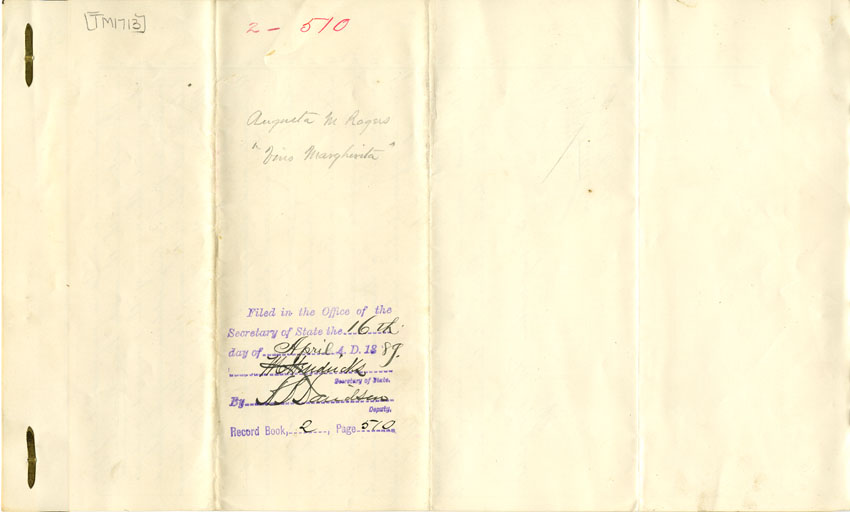 [TM1713]
2 - 510
Augusta M Rogers
"Vino Margherita"
Filed in the Office of the
Secretary of State the 16th
day of April A. D. 1889.
W C Hendricks
Secretary of State.
By Davidson
Deputy.
Record Book, 2, Page 510